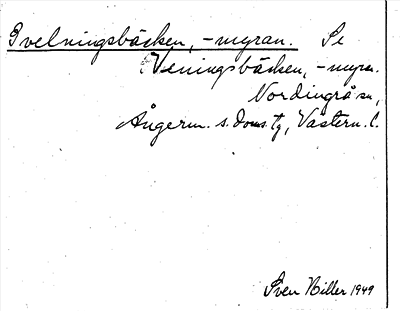 Gvelningsbäcken, -myran. Se
Veningsbäcken, -myr.
Nordingrå sn,
Ångerm. s. doms. tg, Västern. l.
Sven Hiller 1949